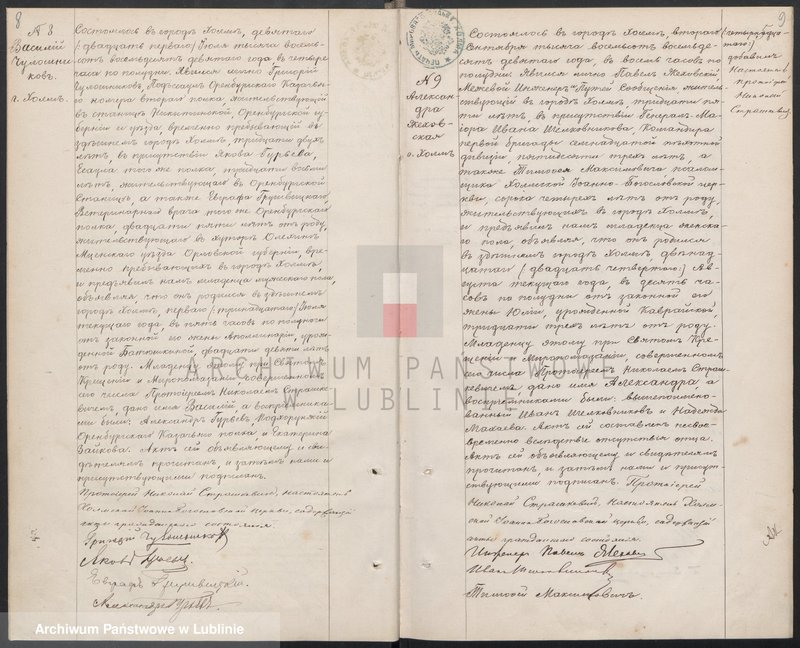 8
№ 8
Василій
г. Холмъ.
Состоялось въ городѣ Холмѣ, девятаго
/двадцать перваго/ Іюля тысяча восемь-
сотъ восемьдесятъ девятаго года, въ четыре
часа по полудни. Явился лично Григорій
Оренбургскаго Казачья-
го номера втораго полка, жительствующій
въ станицѣ Никитинской, Оренбургской гу-
берніи и уѣзда, временно пребывающій въ
здѣшнемъ городѣ Холмѣ, тридцати двухъ
лѣтъ, въ присутствіи Якова Гурьева,
Есаула того же полка, тридцати восьми
лѣтъ, жительствующаго въ Оренбургской
Станицѣ, а также Евграфа
Ветеринарнаго врача того же Оренбургскаго
полка, двадцати пяти лѣтъ отъ роду,
жительствующаго въ
Мценскаго уѣзда Орловской губерніи, вре-
менно пребывающихъ въ городѣ Холмѣ,
и предъявилъ намъ младенца мужескаго пола,
объявляя, что онъ родился въ здѣшнемъ
городѣ Холмѣ, перваго /тринадцатаго/ Іюля
текущаго года, въ пять часовъ по полуночи
отъ законной его жены Аполлинаріи, урож-
денной двадцати девяти лѣтъ
отъ роду. Младенцу этому при Святомъ
Крещеніи и Мѵропомазаніи, совершенномъ
сего числа Протоіереемъ Николаемъ Страшке-
вичемъ, дано имя Василій, а воспріемника-
ми были: Александръ Гурьевъ Подхорунжій
Оренбургскаго Казачьяго полка, и Екатерина
Зайкова. Актъ сей объявляющему и сви-
дѣтелямъ прочитанъ, и затѣмъ нами и
присутствующими подписанъ.
Протоіерей Николай Страшкевичъ, Настоятель
Холмской Іоанно-Богословской церкви, содержащій
акты гражданскаго состоянія.
Яковъ Гурьевъ
Евграфъ
Александръ Гурьевъ
9
№ 9
Алексан-
дра
г. Холмъ
Состоялось въ городѣ Холмѣ, втораго
Сентября тысяча восемьсотъ восемьде-
сятъ девятаго года, въ восемь часовъ по
полудни. Явился лично Павелъ
Инженеръ Путей Сообщенія житель-
ствующій въ городѣ Холмѣ, тридцати пя-
ти лѣтъ, въ присутствіи Генералъ-Ма-
іора Ивана Шелковникова, Командира
первой бригады семнадцатой пѣхотной
дивизіи, пятидесяти трехъ лѣтъ, а
также Тимоѳея Максимовича псалом-
щика Холмской Іоанно-Богословской цер-
кви, сорока четырехъ лѣтъ отъ роду,
жительствующихъ въ городѣ Холмѣ,
и предъявилъ намъ младенца женска-
го пола, объявляя, что онъ родился
въ здѣшнемъ городѣ Холмѣ, двѣнад-
цатаго /двадцать четвертаго/ Ав-
густа текущаго года, въ десять ча-
совъ по полудни отъ законной его
жены Юліи, урожденной Каврайской,
тридцати трехъ лѣтъ отъ роду.
Младенцу этому при Святомъ Кре-
щеніи и Мѵропомазаніи, совершенномъ
сего числа Протоіереемъ Николаемъ Страш-
кевичемъ, дано имя Александра, а
воспріемниками были: вышепоимено-
ванный Иванъ Шелковниковъ и Надежда
Актъ сей составленъ несвое-
временно вслѣдствіе отсутствія отца.
Актъ сей объявляющему и свидѣтелямъ
прочитанъ, и затѣмъ нами и присут-
ствующими подписанъ. Протоіерей
Николай Страшкевичъ, Настоятель Холм-
ской Іоанно-Богословской церкви, содержащій
акты гражданскаго состоянія.
Инженеръ Павелъ
Иванъ Шелковниковъ
Тимоѳей Максимовичъ.
ARCHIWUM PAŃSTWOWE
W LUBLINIE
Archiwum Państwowe w Lublinie